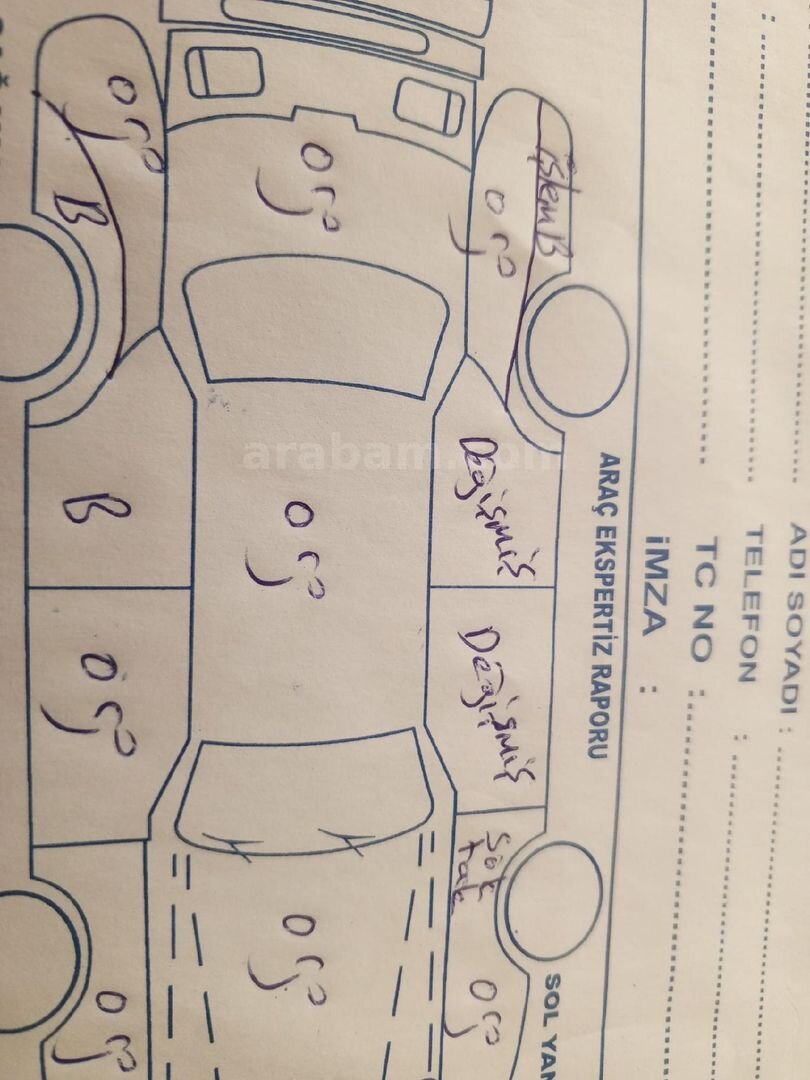 ADI SOYADI :
TELEFON :
TC NO :
İMZA :
ARAÇ EKSPERTİZ RAPORU
SOL YAN
işlem B
orj
Değişmiş
Değişmiş
Sök
tak
orj
orj
orj
orj
arabam.com
orj
B
B
orj
orj
SAĞ